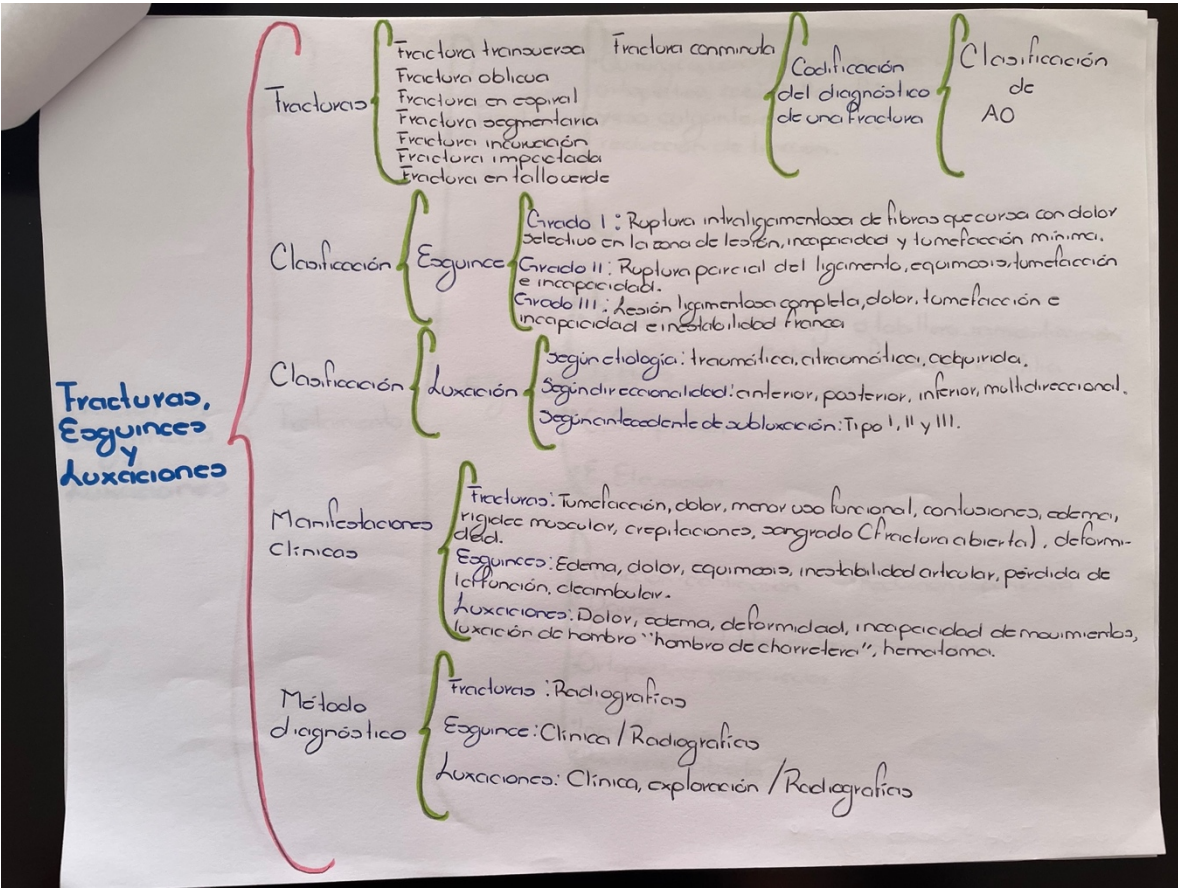 Fracturas,
Esguinces
y
Luxaciones
Fracturas
Fractura transversa Fractura conminuta
Fractura oblicua
Fractura en espiral
Fractura segmentaria
Fractura incuración
Fractura impactada
Fractura en tallo verde
Codificación
del diagnóstico
de una fractura
Clasificación
de
AO
Clasificación
Esguince
Grado I: Ruptura intraligamentosa de fibras que cursa con dolor
selectivo en la zona de lesión, incapacidad y tumefacción mínima.
Grado II: Ruptura parcial del ligamento, equimosis, tumefacción
e incapacidad.
Grado III: Lesión ligamentosa completa, dolor, tumefacción e
incapacidad e inestabilidad franca
Clasificación
Luxación
Según etiología: traumática, atraumática, adquirida.
Según direccionalidad: anterior, posterior, inferior, multidireccional.
Según antecedente de subluxación: Tipo I, II y III.
Manifestaciones
clínicas
Fracturas: Tumefacción, dolor, menor uso funcional, contusiones, edema,
rigidez muscular, crepitaciones, sangrado (fractura abierta), deformi-
dad.
Esguinces: Edema, dolor, equimosis, inestabilidad articular, pérdida de
la función, deambular.
Luxaciones: Dolor, edema, deformidad, incapacidad de movimientos,
luxación de hombro "hombro de charretera", hematoma.
Método
diagnóstico
Fracturas: Radiografías
Esguince: Clínica / Radiografías
Luxaciones: Clínica, exploración / Radiografías